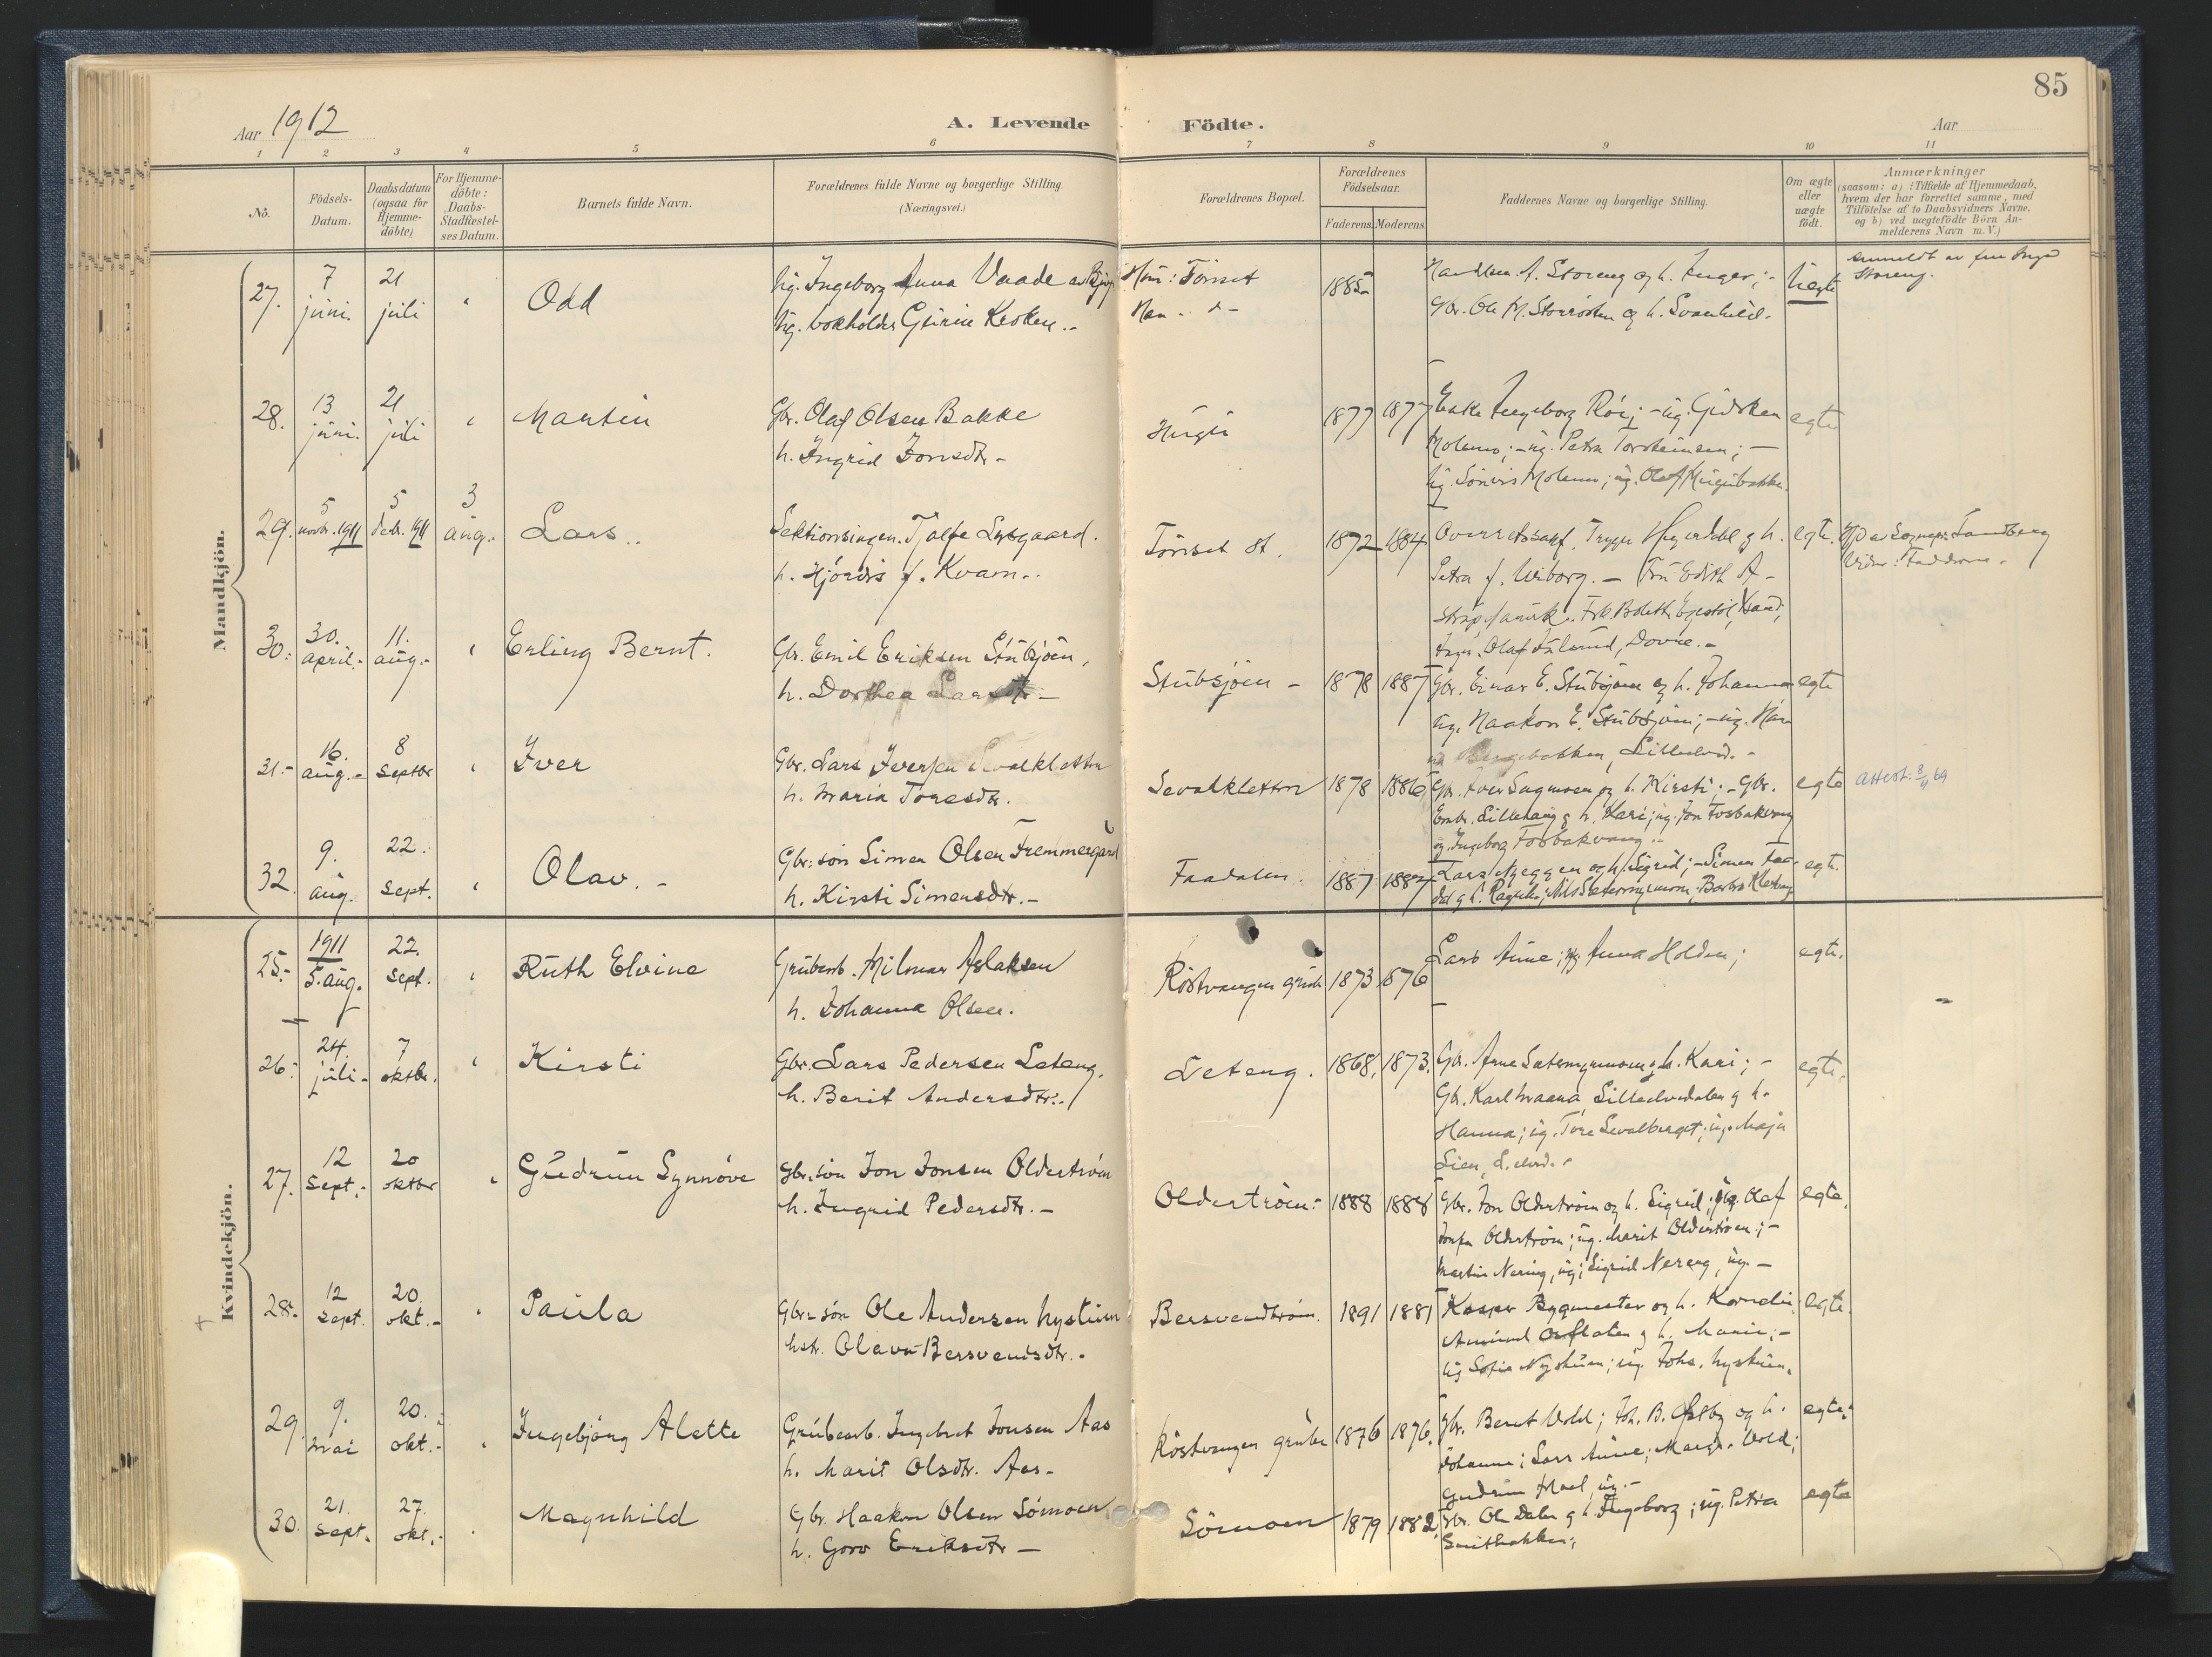 85
Aar 1912
A. Levende Födte.
Aar
1 2 3 4 5 6 7 8 9 10 11
No.
Födsels-Datum.
Daabsdatum (ogsaa for Hjemme-döbte)
For Hjemme-döbte: Daabs-Stadfæstel-ses Datum.
Barnets fulde Navn.
Forældrenes fulde Navne og borgerlige Stilling.
(Næringsvei.)
Forældrenes Bopæl.
Forældrenes Födselsaar.
Faderens. Moderens.
Faddernes Navne og borgerlige Stilling.
Om ægte eller uægte födt.
Anmærkninger
(saasom: a) : Tilfælde af Hjemmedaab,
hvem der har forrettet samme, med
Tilföielse af to Daabsvidners Navne,
og b) ved uægtefödte Börn An-
melderens Navn m. V.)
Mandkjön.
27. 7 juni. 21 juli " Odd
Ug. Ingeborg Anna Vaade
Ug. bokholder Keoken.
Hun: Tönset
Han - " -
1885
A. Storeng og h. Inger; -
Gbr. Ole M. og h. Svanhild.
Uegte
anmeldt av fru Inga
Storeng.
28. 13 juni. 21 juli " Martin
Gbr. Olaf Olsen Bakke
h. Ingrid Jonsdtr. -
Hugu
1877 1877
Enke Ingeborg Röe; - ug. Gidsken
Moleno; - ug. Petra Torsteinsen; -
ug. Moleno; ug. Olaf Hugubakke.
egte
29. 5 novbr. 1911 5 decb. 1911 3 aug. Lars..
Sektionsingen. Tjalfe Lysgaard.
h. Hjördis f. Kvam..
Tönset st.
1872 1884
Overretssakf. Trygve Hegerdahl og h.
Petra f. Wiborg. - Fru Edith
Ingen. Olaf Dovre. -
egte.
Hjd av Sognepr. Sandberg
Vidner: Fadderne.
30. 30. april. 11. aug. " Erling Bernt.
Gbr. Emil Eriksen Stubsjöen,
h. Dorthea Larsdtr. -
Stubsjöen -
1878 1887
Gbr. Einar E. Stubsjöen og h. Johanna
ug. Haakon E. Stubsjöen; - ug.
Lilleelved. -
egte
31. 16. aug. 8 septbr " Iver
Gbr. Lars Iversen Sevalkletten
h. Maria Toresdtr.
Sevalkletten
1878 1886
Gbr. Iver Sagmoen og h. Kirsti; - Gbr.
Embr. Lillehaug og h. Kari; ug. Jon Fosbakvang
og Ingeborg Fosbakvang..
egte
Attest: 8/11 69
32. 9. aug. 22. sept. " Olav. -
Gbr: sön Simen Olsen Fremmergard
h. Kirsti Simensdtr. -
Faadalen.
1887 1887
Lars Skjeggen og h. Sigrid; - Simen Faa-
dal og h. Ragnh.; Nils Sætermyrmoen,
egte.
Kvindekjön.
25. 1911 5. aug. 22. sept. " Ruth Elvine
Grubearb. Hilmar Aslaksen
h. Johanna Olsen.
Röstvangen grube
1873 1876
Lars Aune; ug. Anna Holden;
egte.
26. 24. juli 7 oktbr. " Kirsti
Gbr. Lars Pedersen Leteng.
h. Berit Andersdtr..
Leteng.
1868. 1873.
Gbr. Arne Sætermyrmoen og h. Kari; -
Gbr. Karl Maana, Lilleelvedalen og h.
Hanna; ug. Tore Sevalberget; ug. Maja
Lien, L. elved. -
egte.
27. 12 sept. 20 oktbr " Gudrun Synnöve
Gbr. sön Jon Jonsen Oldertröen
h. Ingrid Pedersdtr. -
Oldertröen. -
1888 1888
Gbr. Jon Oldertröen og h. Sigrid; ug. Olaf
Jonsen Oldertröen; ug. Marit Oldertröen; -
Martin Nereng, ug; Sigrid Nereng, ug. -
egte.
28. 12 sept. 20. okt. " Paula
Gbr. sön Ole Andersen Nystuen
hst. Olava Bersvendsdtr. -
Bersvendtröen.
1891 1881
Kasper Bygmester og h. Kornelia
Amund og h. Marie; -
ug Sofie Nystuen; ug. Johs. Nystuen.
egte.
29. 9. mai 20. okt. " Ingebjörg Alette
Grubearb. Ingebret Jonsen Aas
h. Marit Olsdtr. Aas.
Röstvangen grube
1876 1876.
Gbr. Bernt Wold; Joh. B. Östby og h.
Johanne; Lars Aune; Margr. Wold;
Gudrun Moel, ug. -
egte.
30. 21. sept. 27. okt. " Magnhild
Gbr. Haakon Olsen Sömoen
h. Goro Eriksdtr -
Sömoen
1879 1882.
Gbr. Ole Dalen og h. Ingeborg; ug. Petra
egte